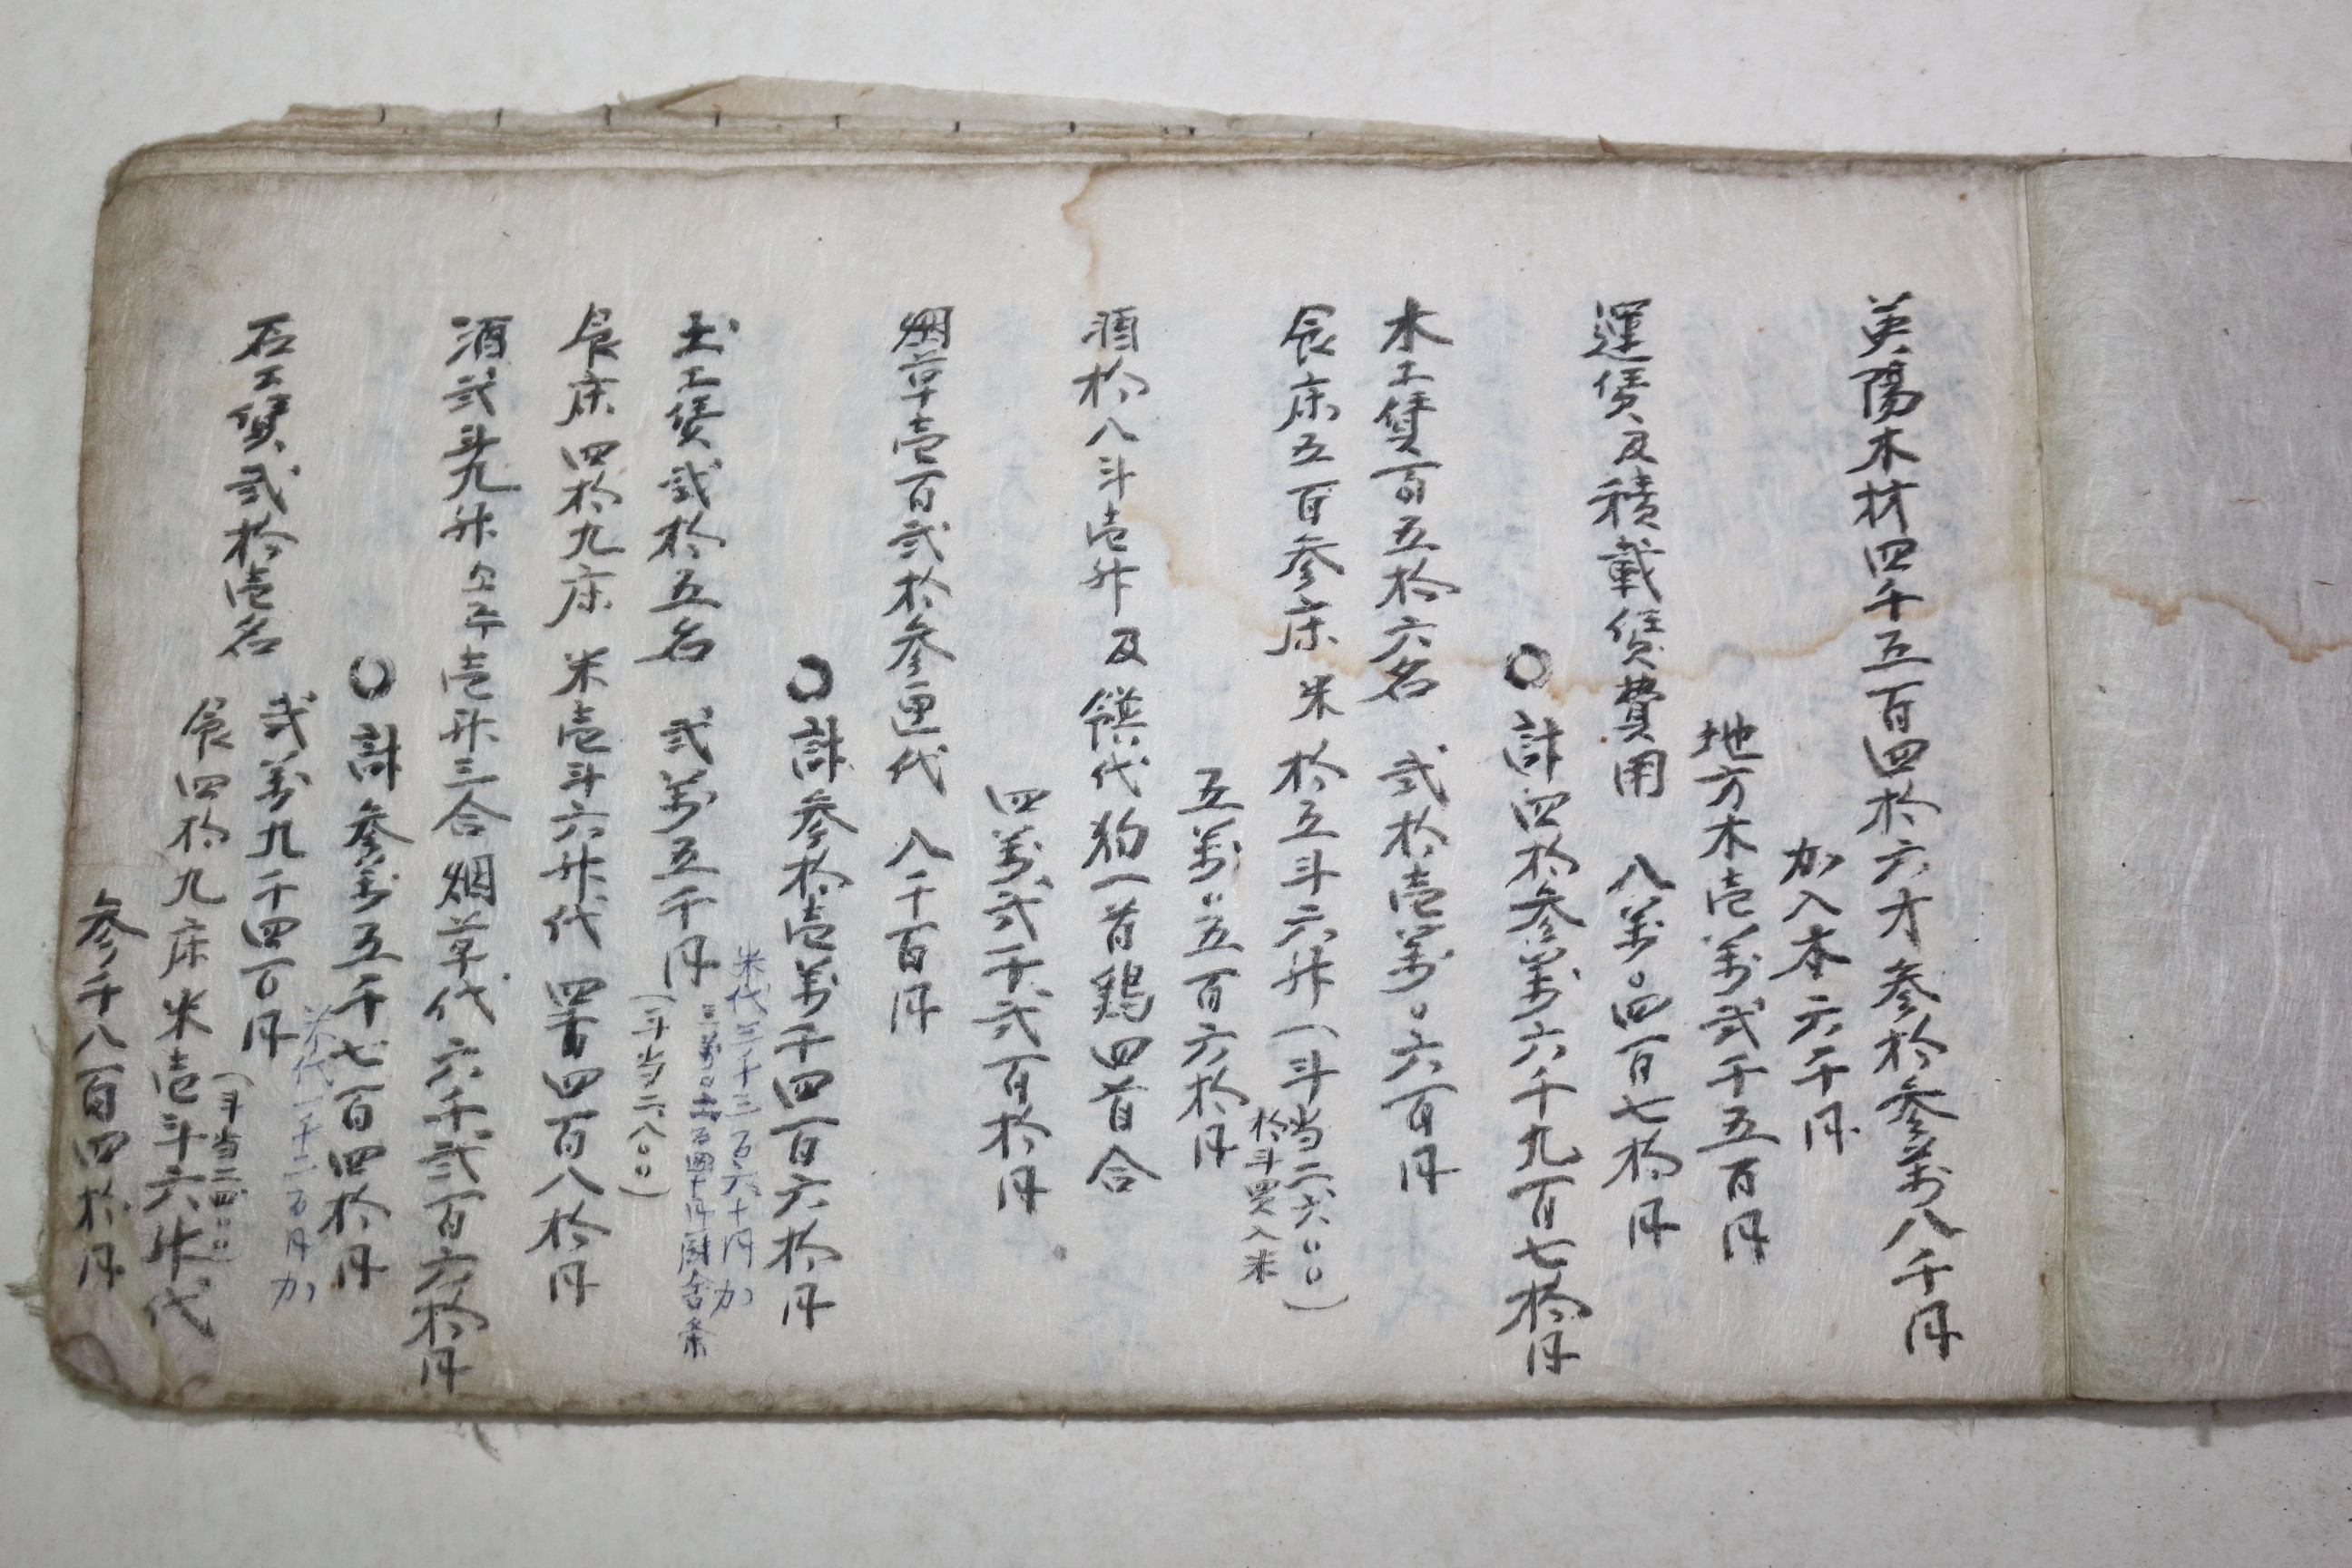 英陽木材四千五百四拾六才 參拾參萬八千円
加入本六千円
地方木壱萬弍千五百円
運賃及積載賃費用 八萬〇四百七拾円
〇計四拾參萬六千九百七拾円
木工賃百五拾六名 弍拾壱萬〇六百円
食床五百參床 米拾五斗六升(一斗当二六〇〇)
拾斗買入米
五萬〇五百六拾円
酒拾八斗壱升及饌代狗一首鷄四首合
四萬弍千弍百拾円
烟草壱百弍拾參匣代 八千百円
〇計參拾壱萬千四百六拾円
米代三千三百六十円加
土工賃弍拾五名 弍萬五千円
(一斗当二八〇〇)
食床四拾九床 米壱斗六升代 四百八拾円
酒弍斗九升 壱升三合 烟草代 六千弍百六拾円
〇計參萬五千七百四拾円
米代一千二百円加
石工賃弍拾壱名 弍萬九千四百円
(一斗当二四〇〇)
食四拾九床米壱斗六升代
參千八百四拾円